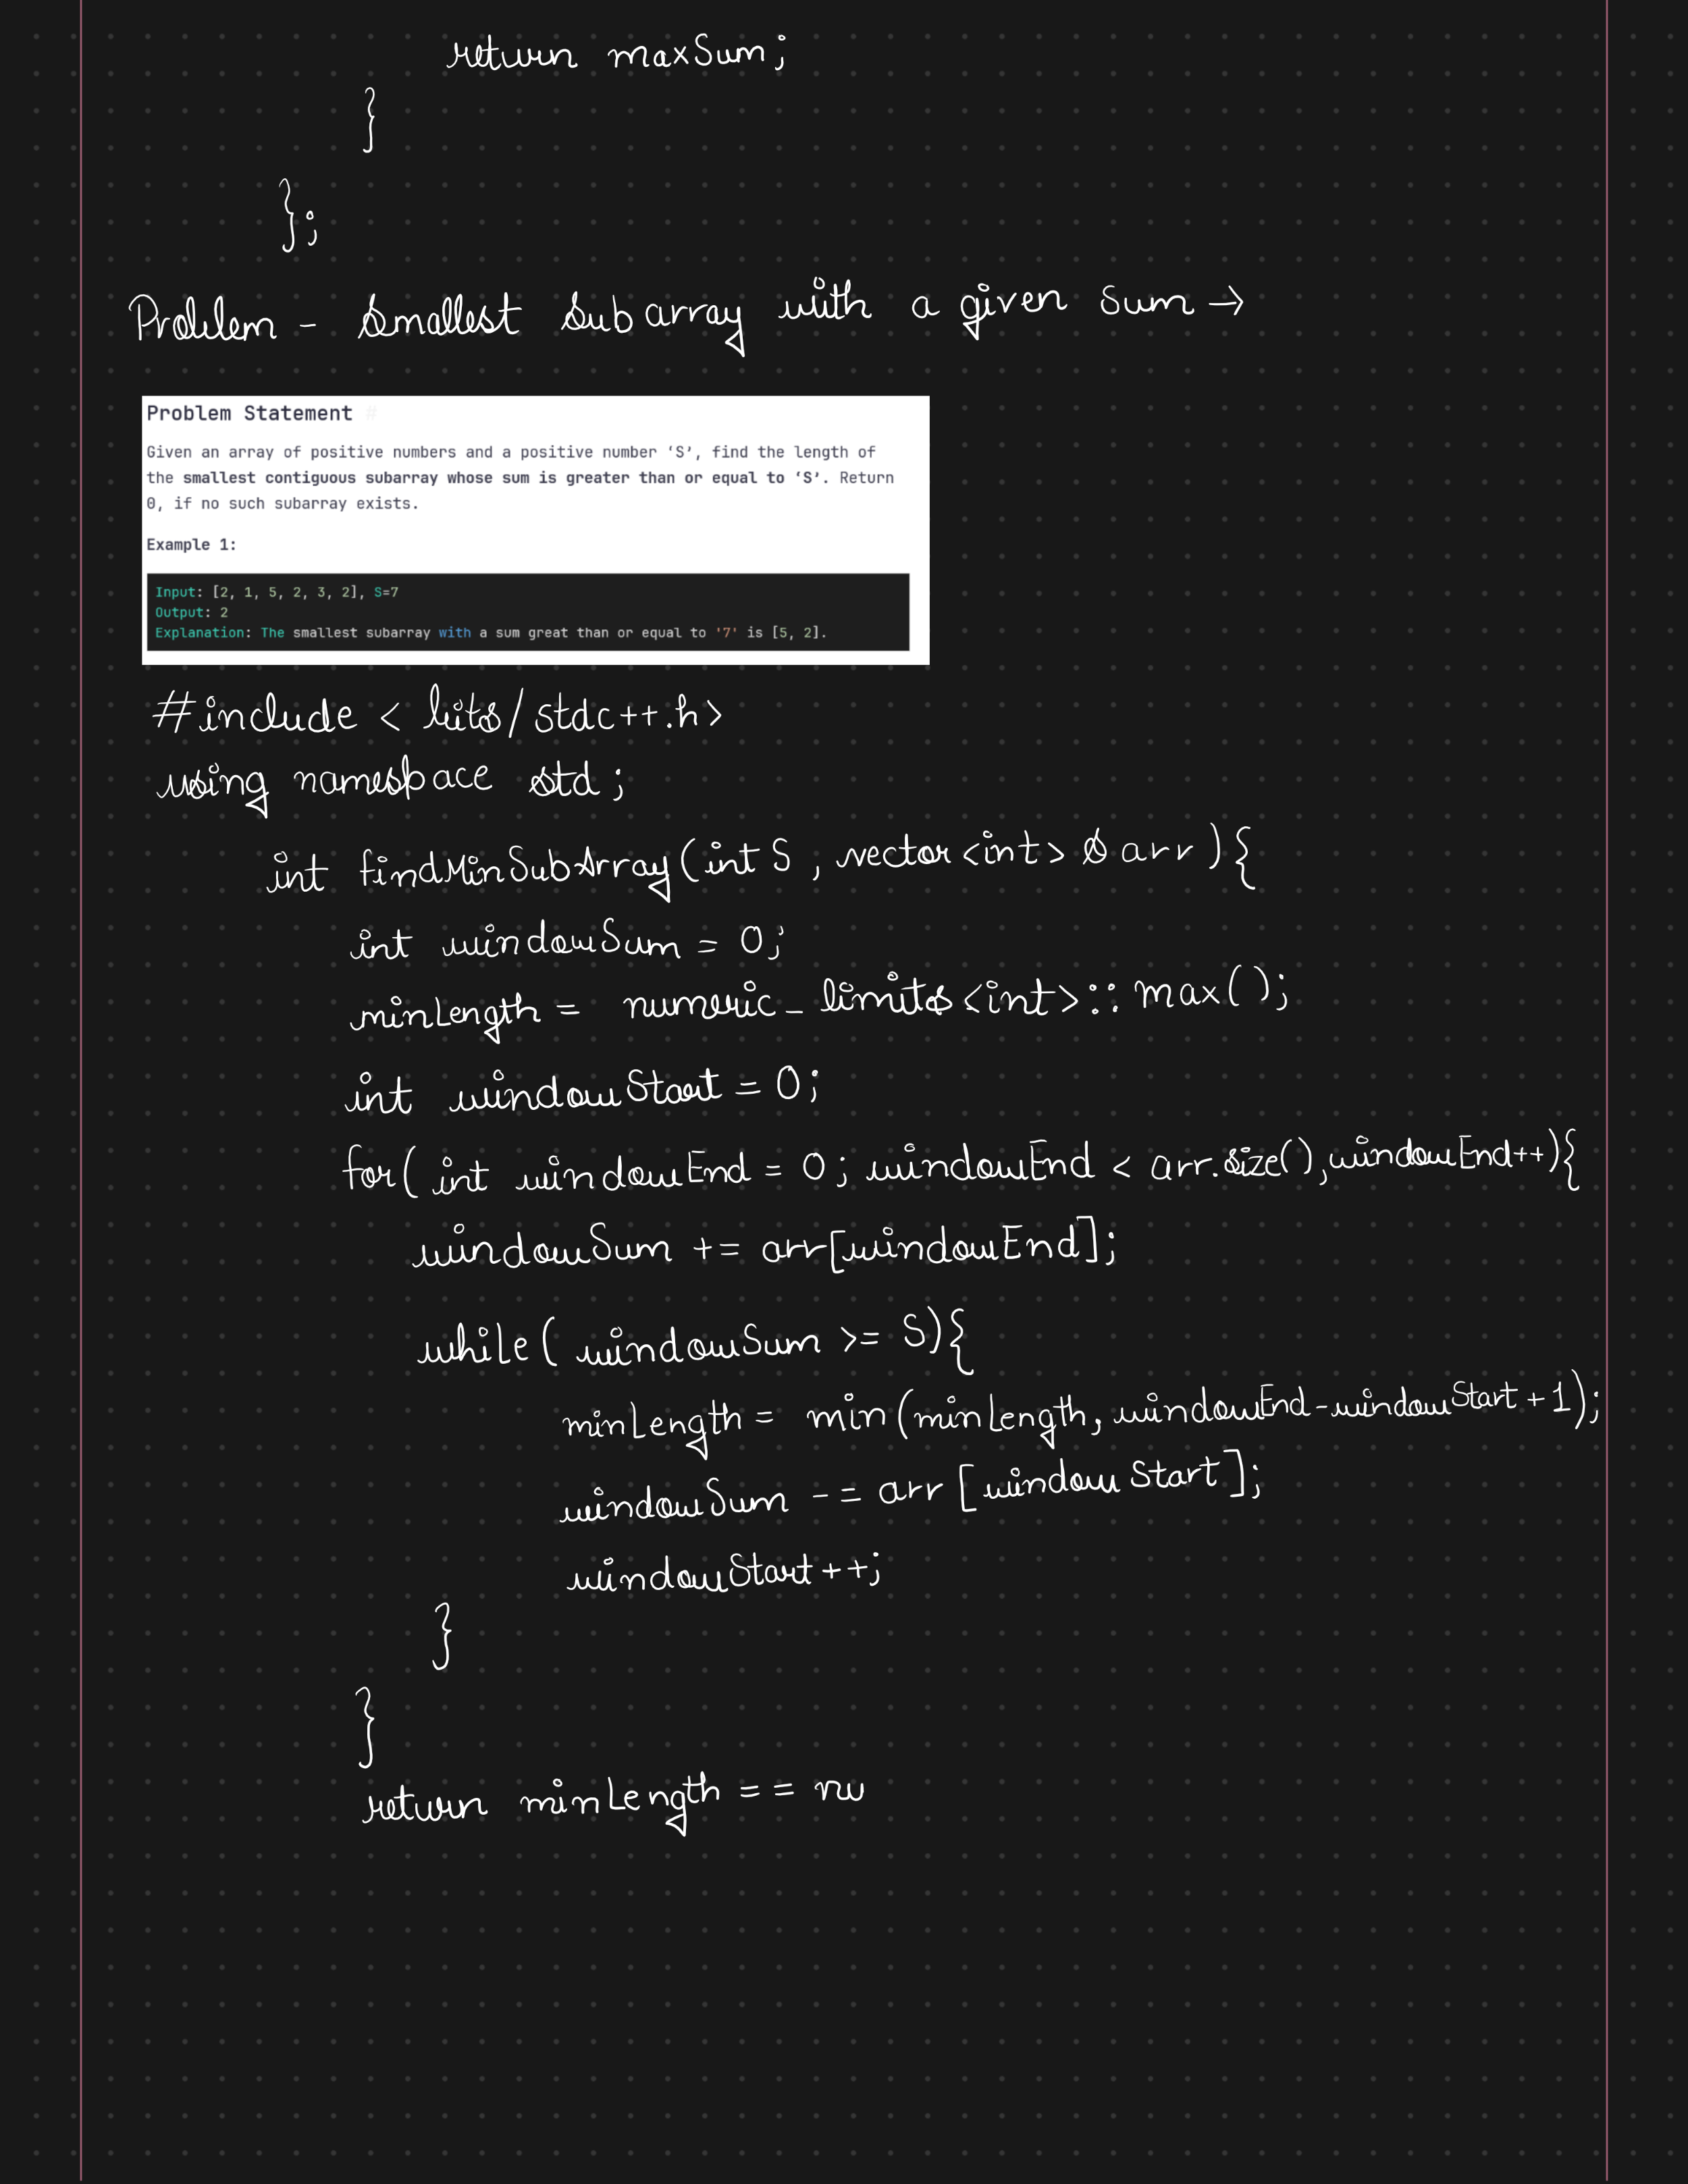 return maxSum;
}
};
Problem - Smallest Subarray with a given sum →
Problem Statement #
Given an array of positive numbers and a positive number ‘S’, find the length of
the smallest contiguous subarray whose sum is greater than or equal to ‘S’. Return
0, if no such subarray exists.
Example 1:
Input: [2, 1, 5, 2, 3, 2], S=7
Output: 2
Explanation: The smallest subarray with a sum great than or equal to '7' is [5, 2].
#include < bits/stdc++.h>
using namespace std;
int findMinSubArray(int S, vector<int> & arr){
int windowSum = 0;
minLength = numeric_limits<int>::max();
int windowStart = 0;
for( int windowEnd = 0; windowEnd < arr.size(), windowEnd++){
windowSum += arr[windowEnd];
while( windowSum >= S){
minLength = min(minLength, windowEnd-windowStart+1);
windowSum -= arr[windowStart];
windowStart++;
}
}
return minLength == nu